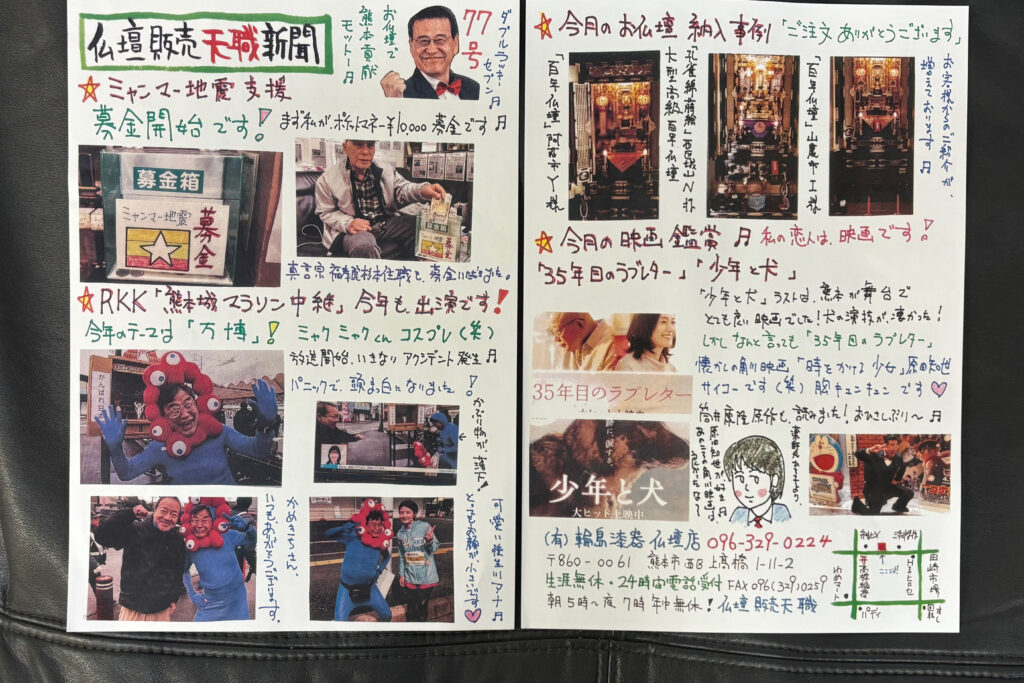 仏壇販売天職新聞
お仏壇で
熊本貢献
モットー♬
77号
ダブルラッキー
セブン♬
☆ミャンマー地震支援
募金開始です!
まず私が、ポケットマネー¥10,000募金です♬
募金箱
ミャンマー地震
募金
募金箱
真言宗福寿院杉本住職も、募金いただきました。
☆RKK「熊本城マラソン中継」今年も、出演です!
今年のテーマは「万博」!ミャクミャクくんコスプレ(笑)
放送開始、いきなりアクシデント発生♬
パニックで、頭ま白になりました!
がんばれ日
かぶり物が、落下!
かめきちさん、
いつも、ありがとうございます。
可愛い後生川アナ♬
とってもお顔が、小さいです。
☆今月のお仏壇納入事例「ご注文ありがとうございます」
「百年仏壇」阿蘇市Y様
大型高級百年仏壇
「百年仏壇」山鹿市I様
お客様からのご紹介が、
増えております♬
☆今月の映画鑑賞♬私の恋人は、映画です!
「35年目のラブレター」「少年と犬」
「少年と犬」ラストは、熊本が舞台で
とても良い映画でした!犬の演技が、凄かった!
しかしなんと言っても「35年目のラブレター」
懐かしの角川映画「時をかける少女」原田知世
サイコーです(笑)胸キュンキュンです♡
筒井康隆原作も、読みました!おひさしぶり〜♬
35年目のラブレター
少年と犬
大ヒット上映中
原田知世が、好き♬
(有)輪島漆器仏壇店 096-329-0224
〒860-0061 熊本市西区上高橋1-11-2
生涯無休・24時間電話受付 FAX096(329)0259
朝5時〜夜7時年中無休!仏壇販売天職
ここ
田崎市場
ゆめマート